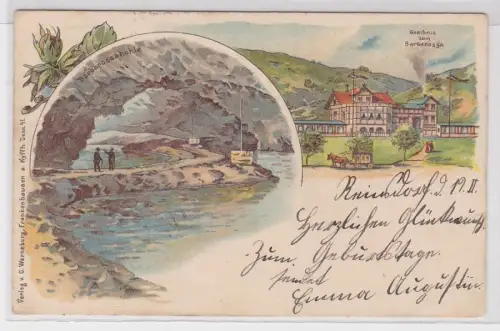 Barbarossahöhle
Gasthaus
zum
Barbarossa
Verlag v. C. Werneburg, Frankenhausen a. Kyffh.
Reinsdorf d. 19. II
Herzlichen Glückwunsch
Zum Geburtstage
sendet
Emma Augustin